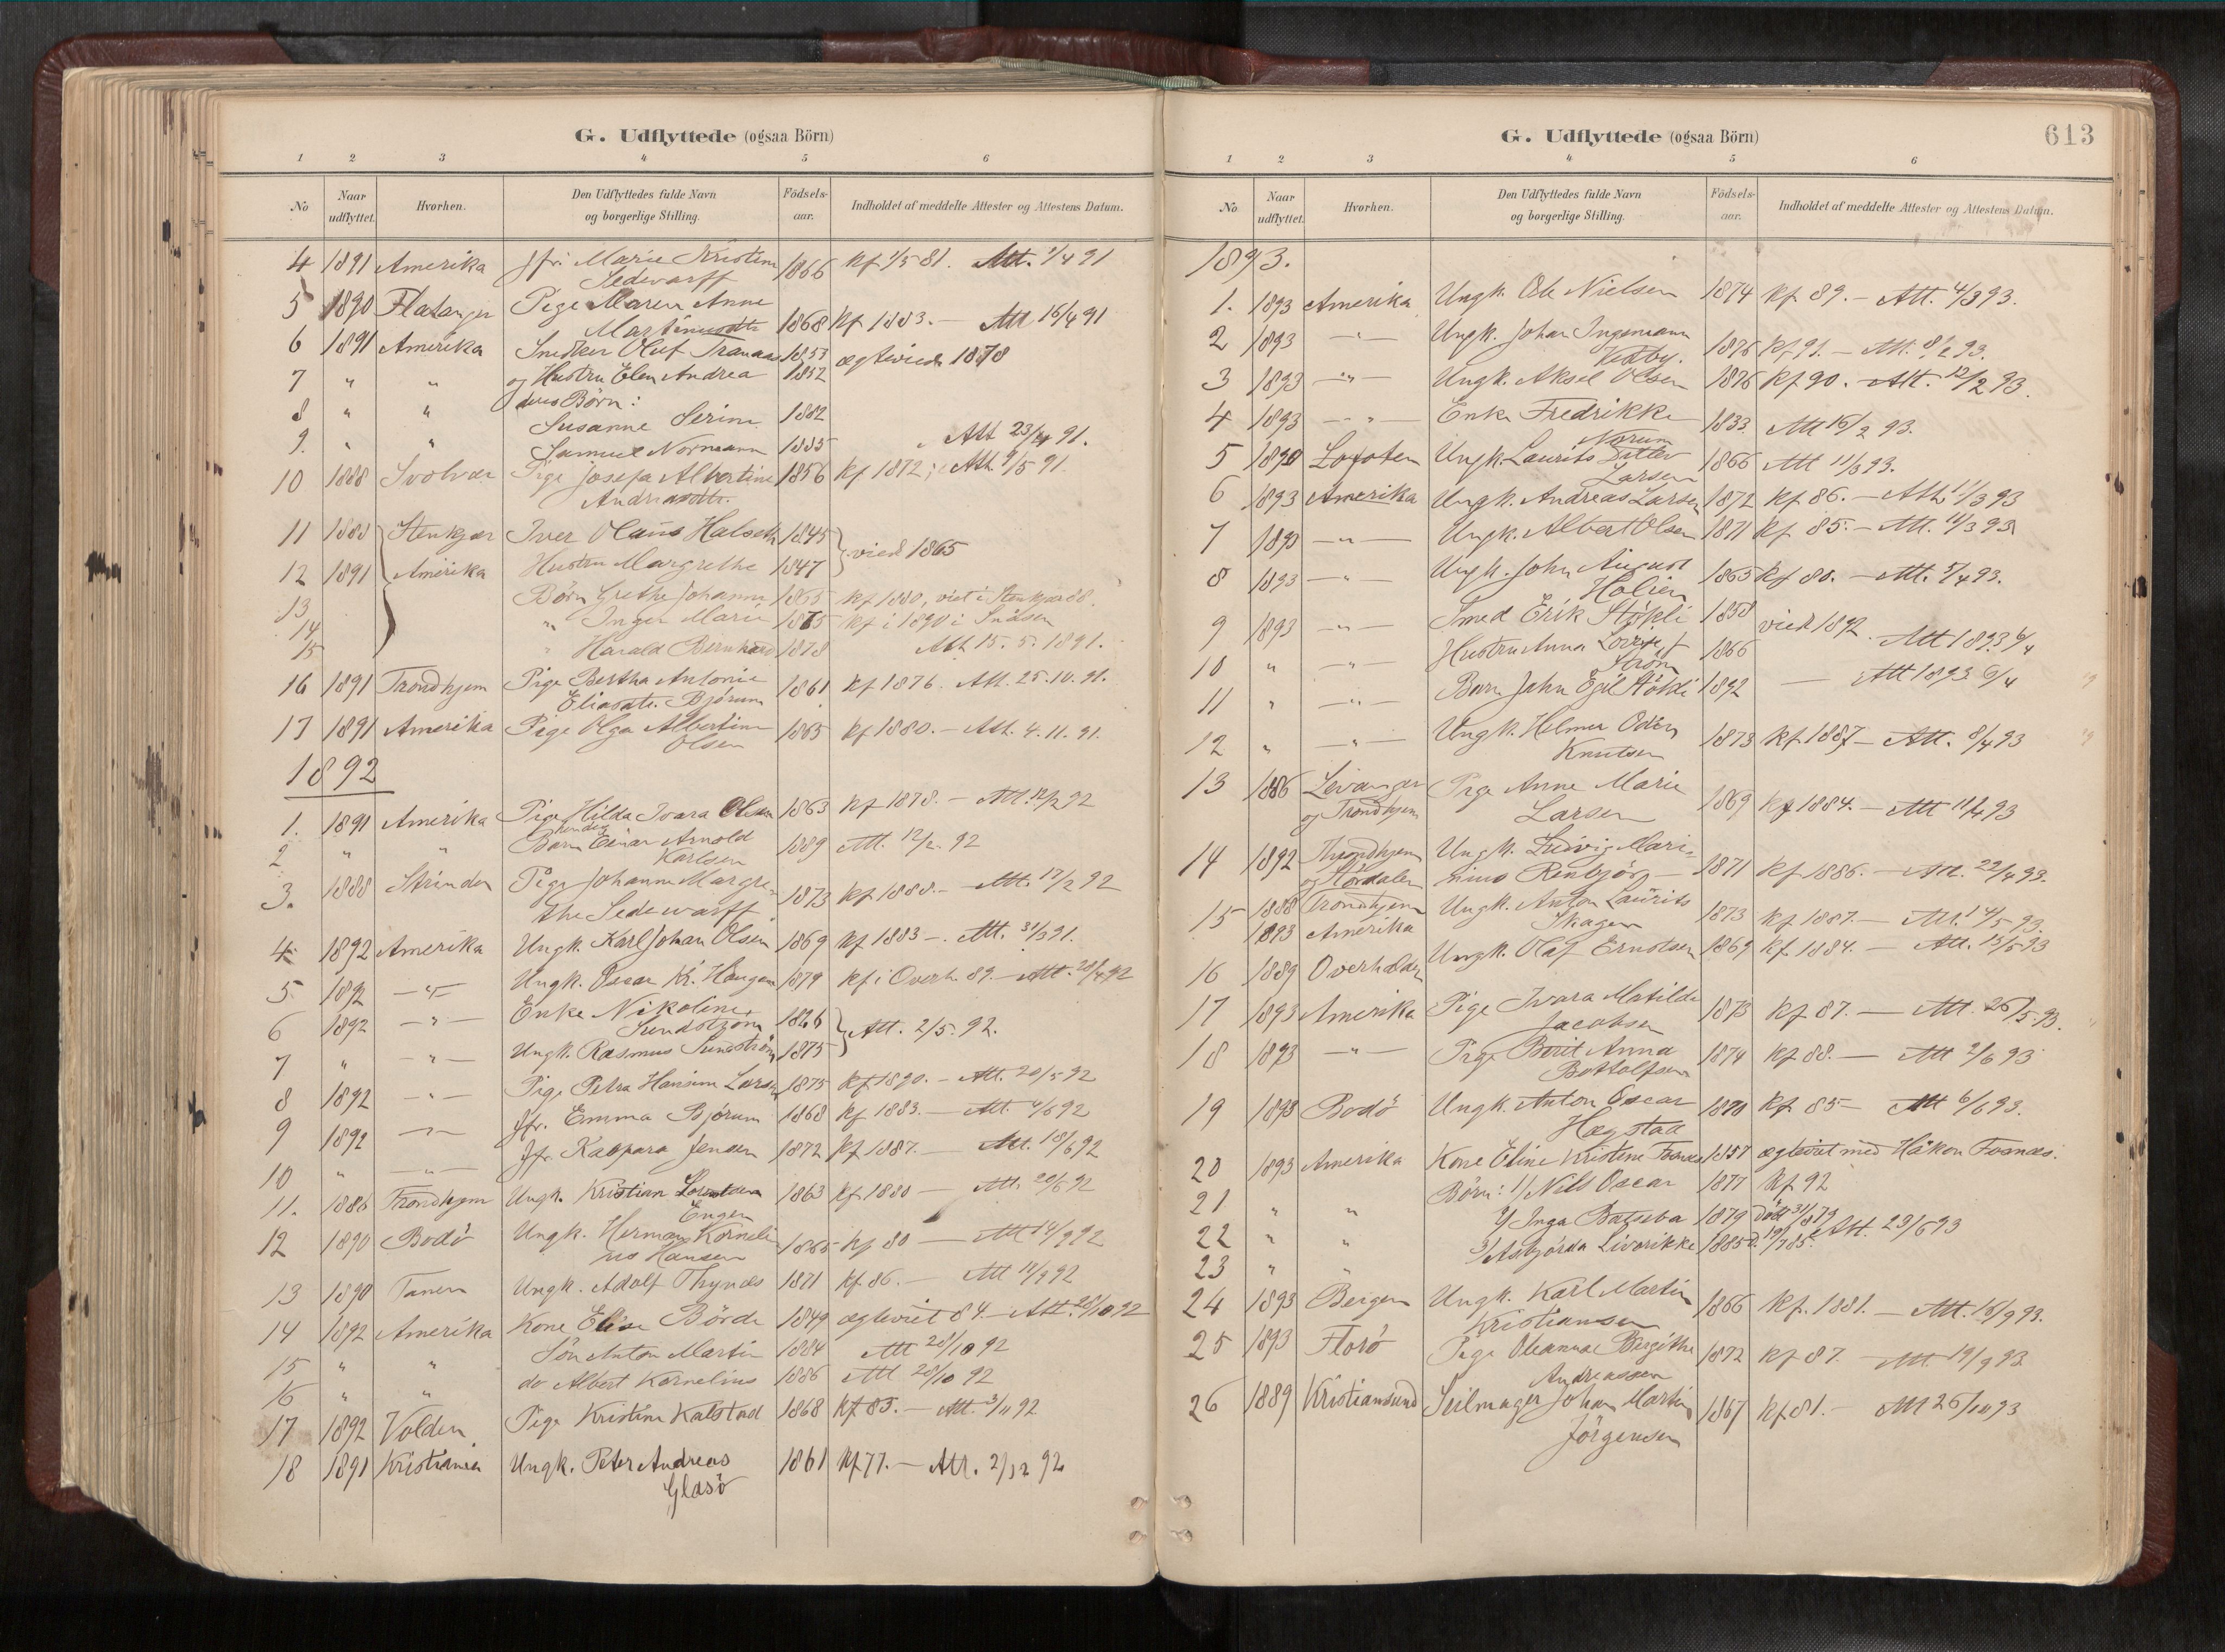 G. Udflyttede (ogsaa Börn)
1 2 3 4 5 6
No Naar udflyttet. Hvorhen. Den Udflyttedes fulde Navn og borgerlige Stilling. Födsels-aar. Indholdet af meddelte Attester og Attestens Datum.
4 1891 Amerika Jfr. Marie Kristine 1866 kf 1/5 81. Att. 1/4 91
Sedewarff
5 1890 Flatanger Pige Maren Anne
Martinusdtr 1868 kf 1883. — Att 16/4 91
6 1891 Amerika Snedker Oluf Tranaas 1853 ægteviede 1878
7 " " og Hustru Elen Andrea 1852
deres Börn:
8 " " Susanne Serine 1882
9. " " Samuel Normann 1885 Att 23/4 91.
10 1888 Svolvær Pige Josefa Albertine 1856 kf 1872; Att. 9/5 91.
Andreasdtr.
11 1888 Stenkjær Iver Olaus Halseth 1845
12 1891 Amerika Hustru Margrethe 1847 } viede 1865
13 Börn Grethe Johanna 1865 kf 1880, viet i Stenkjær 88.
14 " Inger Marie 1875 kf i 1890 i Snåsen
15 " Harald Bernhard 1878 Att 15. 5. 1891.
16 1891 Trondhjem Pige Bertha Antonie 1861 kf 1876. Att. 25.10.91.
Eliasdtr. Bjørum
17 1891 Amerika Pige Olga Albertine 1865 kf 1880. — Att. 4. 11. 91.
Olsen
1892
1. 1891 Amerika Pige Hilda Ivara Olsen 1863 kf 1878. — Att. 12/2 92
2 " " Barn Einar Arnold 1889 Att. 12/2 92
Karlsen
3. 1888 Strinden Pige Johanna Margre- 1873 kf 1888. — Att. 17/2 92
the Sedewarff
4 1892 Amerika Ungk. Karl Johan Olsen 1869 kf 1883 —. Att. 31/3 91.
5 1892 — " — Ungk. Oscar Kr. Haugan 1879 kf i Overh. 89. — Att. 28/4 92
6 1892 — " — Enke Nikoline 1826 } Att. 2/5. 92.
Sundström
7 " — " — Ungk. Rasmus Sundström 1875
8 1892 — " — Pige Petra Hansine Larsen 1875 kf 1890. — Att. 20/5 92
9 1892 — " — Jfr. Emma Bjørum 1868 kf 1883. — Att. 4/6 92
10 " — " — Jfr. Kaspara Jensen 1872 kf 1887. — Att. 18/6 92
11. 1886 Trondhjem Ungk. Kristian 1863 kf 1880 — Att. 20/6 92
Engen
12 1890 Bodö Ungk. Herman Korneli- 1865 kf 80 — Att 14/9 92
us Hansen
13 1890 Tanen Ungk. Adolf Thynæs 1871 kf 86. — Att 12/9 92
14 1892 Amerika Kone Elise Börde 1849 ægteviet 84. — Att. 28/10 92
15 " " Sön Anton Martin 1884 Att 28/10 92
16 " " do Albert Kornelius 1886 Att 28/10 92
17 1892 Volden Pige Kristine Kalstad 1868 kf 83. — Att. 3/11 92
18 1891 Kristiania Ungk. Peter Andreas 1861 kf 77. — Att. 2/12 92
Glasö
G. Udflyttede (ogsaa Börn)
613
1 2 3 4 5 6
No Naar udflyttet. Hvorhen. Den Udflyttedes fulde Navn og borgerlige Stilling. Födsels-aar. Indholdet af meddelte Attester og Attestens Datum.
1893.
1. 1893 Amerika Ungk. Ole Nielsen 1874 kf 89. — Att. 4/3 93.
2 1893 — " — Ungk. Johan Ingemann 1876 kf 91. — Att. 8/2 93.
3 1893 — " — Ungk. Aksel Olsen 1876 kf 90. — Att. 12/2 93.
4 1893 — " — Enke Fredrikke 1833 Att 16/2 93.
Norum
5 1890 Lofoten Ungk. Laurits Ditlev 1866 Att 11/3 93.
Larsen
6 1893 Amerika Ungk. Andreas Larsen 1872 kf 86. — Att. 11/3 93
7 1893 — " — Ungk. Albert Olsen 1871 kf 85. — Att. 11/3 93
8 1893 — " — Ungk. John August 1865 kf 80. — Att. 5/4 93.
Holien
9 1893 — " — Smed Erik Stöpli 1858 viede 1892.
10 " — " — Hustru Anna f 1866 Att 1893 6/4
Ström
11 " — " — Barn John Egil Stökli 1892 — Att 1893 6/4
12 " — " — Ungk. Helmer Odin 1873 kf 1887 — Att. 8/4 93
Knutsen
13 1886 Levanger Pige Anne Marie 1869 kf 1884. — Att 11/4 93
og Trondhjem Larsen
14 1892 Throndhjem Ungk. Ludvig Mari- 1871 kf 1886. — Att. 22/4 93.
og Stördalen nius Renbjör
15 1888 Trondhjem Ungk. Anton Laurits 1873 kf 1887. — Att. 14/5 93.
1893 Amerika Skagen
16 1889 Overhalden Ungk. Olaf Ernstsen 1869 kf. 1884. — Att. 15/5 93
17 1893 Amerika Pige Ivara Matilde 1873 kf 87. — Att. 26/5 93.
Jacobsen
18 1893 — " — Pige Berit Anna 1874 kf 88. — Att 2/6 93
Bottolfsen
19 1893 Bodö Ungk. Anton Oscar 1870 kf 85 — Att 6/6 93.
Hægstad
20 1893 Amerika Kone Eline Kristine Fosnæs 1857 ægteviet med Håkon Fosnæs.
21 " " Börn: 1/ Nils Oscar 1877 kf 92
22 " " 2/ Inga Batseba 1879 döbt 31/8 79
23 " " 3/ Asbjörda Livorikke 1885 d. 19/7 85. Att. 23/6 93
24 1893 Bergen Ungk. Karl Martin 1866 kf. 1881. — Att. 16/9 93.
Kristiansen
25 1893 Florö Pige Oleanna Bergithe 1872 kf 87. — Att. 19/9 93
Andreassen
26 1889 Kristiansund Seilmager Johan Martin 1867 kf 81. — Att 26/10 93
Jörgensen